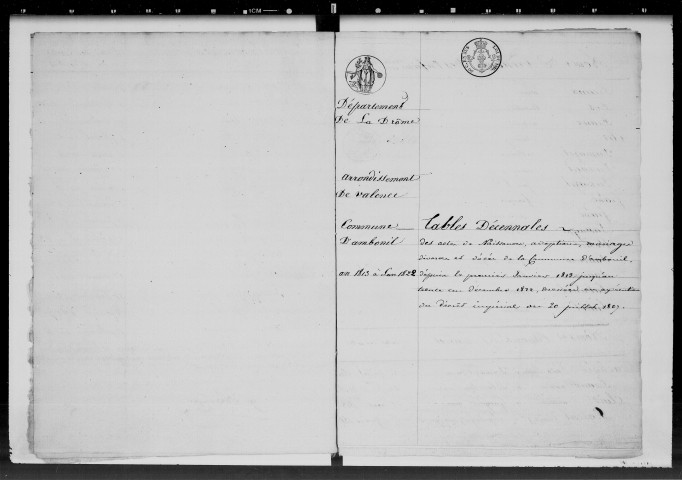 Département
De La Drôme
arrondissement
De valence
Commune
D'ambonil
an 1813 à l'an 1822
Tables Décennales
des acte de Naissance, adoptions, mariages
divorce et décès de la Commune D'ambonil,
depuis le premier Janvier 1813 jusqu'au
trente un Décembre 1822, dressées en exécution
du Décret impérial du 20 juillet 1807.